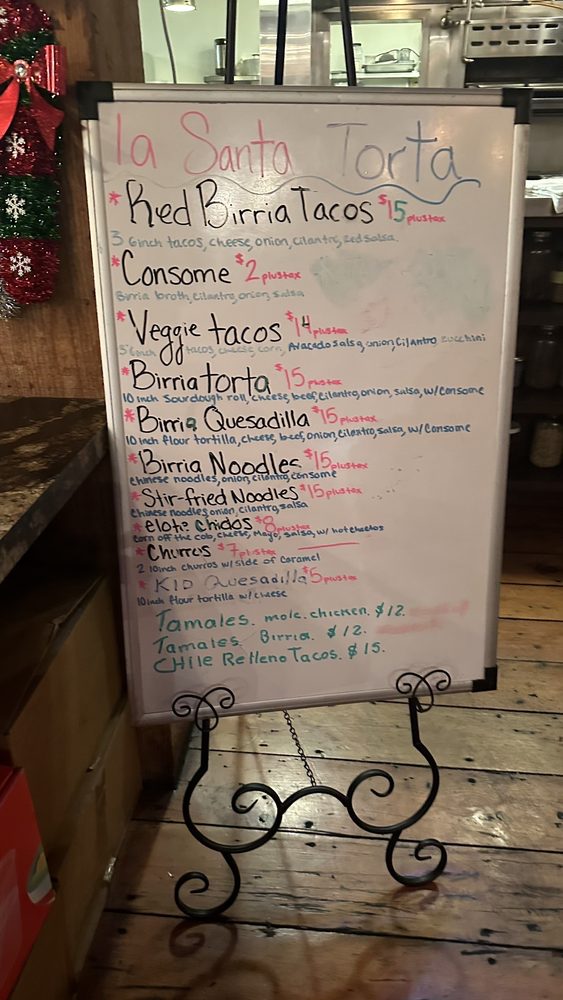 la Santa Torta
* Red Birria Tacos $15 plus tax
3 6inch tacos, cheese, onion, cilantro, red salsa.
* Consome $2 plus tax
Birria broth, cilantro, onion, salsa
* Veggie tacos $14 plus tax
tacos, cheese, corn, Avacado salsa, onion, cilantro zucchini
* Birria torta $15 plus tax
10 inch Sourdough roll, cheese, beef, cilantro, onion, salsa, w/ Consome
* Birria Quesadilla $15 plus tax
10 inch flour tortilla, cheese, beef, onion, cilantro, salsa, w/ Consome
* Birria Noodles $15 plus tax
Chinese noodles, onion, cilantro, consome
* Stir-fried Noodles $15 plus tax
Chinese noodles, onion, cilantro, salsa
* elote chidos $8 plus tax
corn off the cob, cheese, mayo, salsa, w/ hot cheetos
* Churros $7 plus tax
2 10inch churros w/ side of caramel
* KID Quesadilla $5 plus tax
10inch flour tortilla w/ cheese
Tamales. mole. chicken. $12.
Tamales. Birria. $12.
CHile Relleno Tacos. $15.